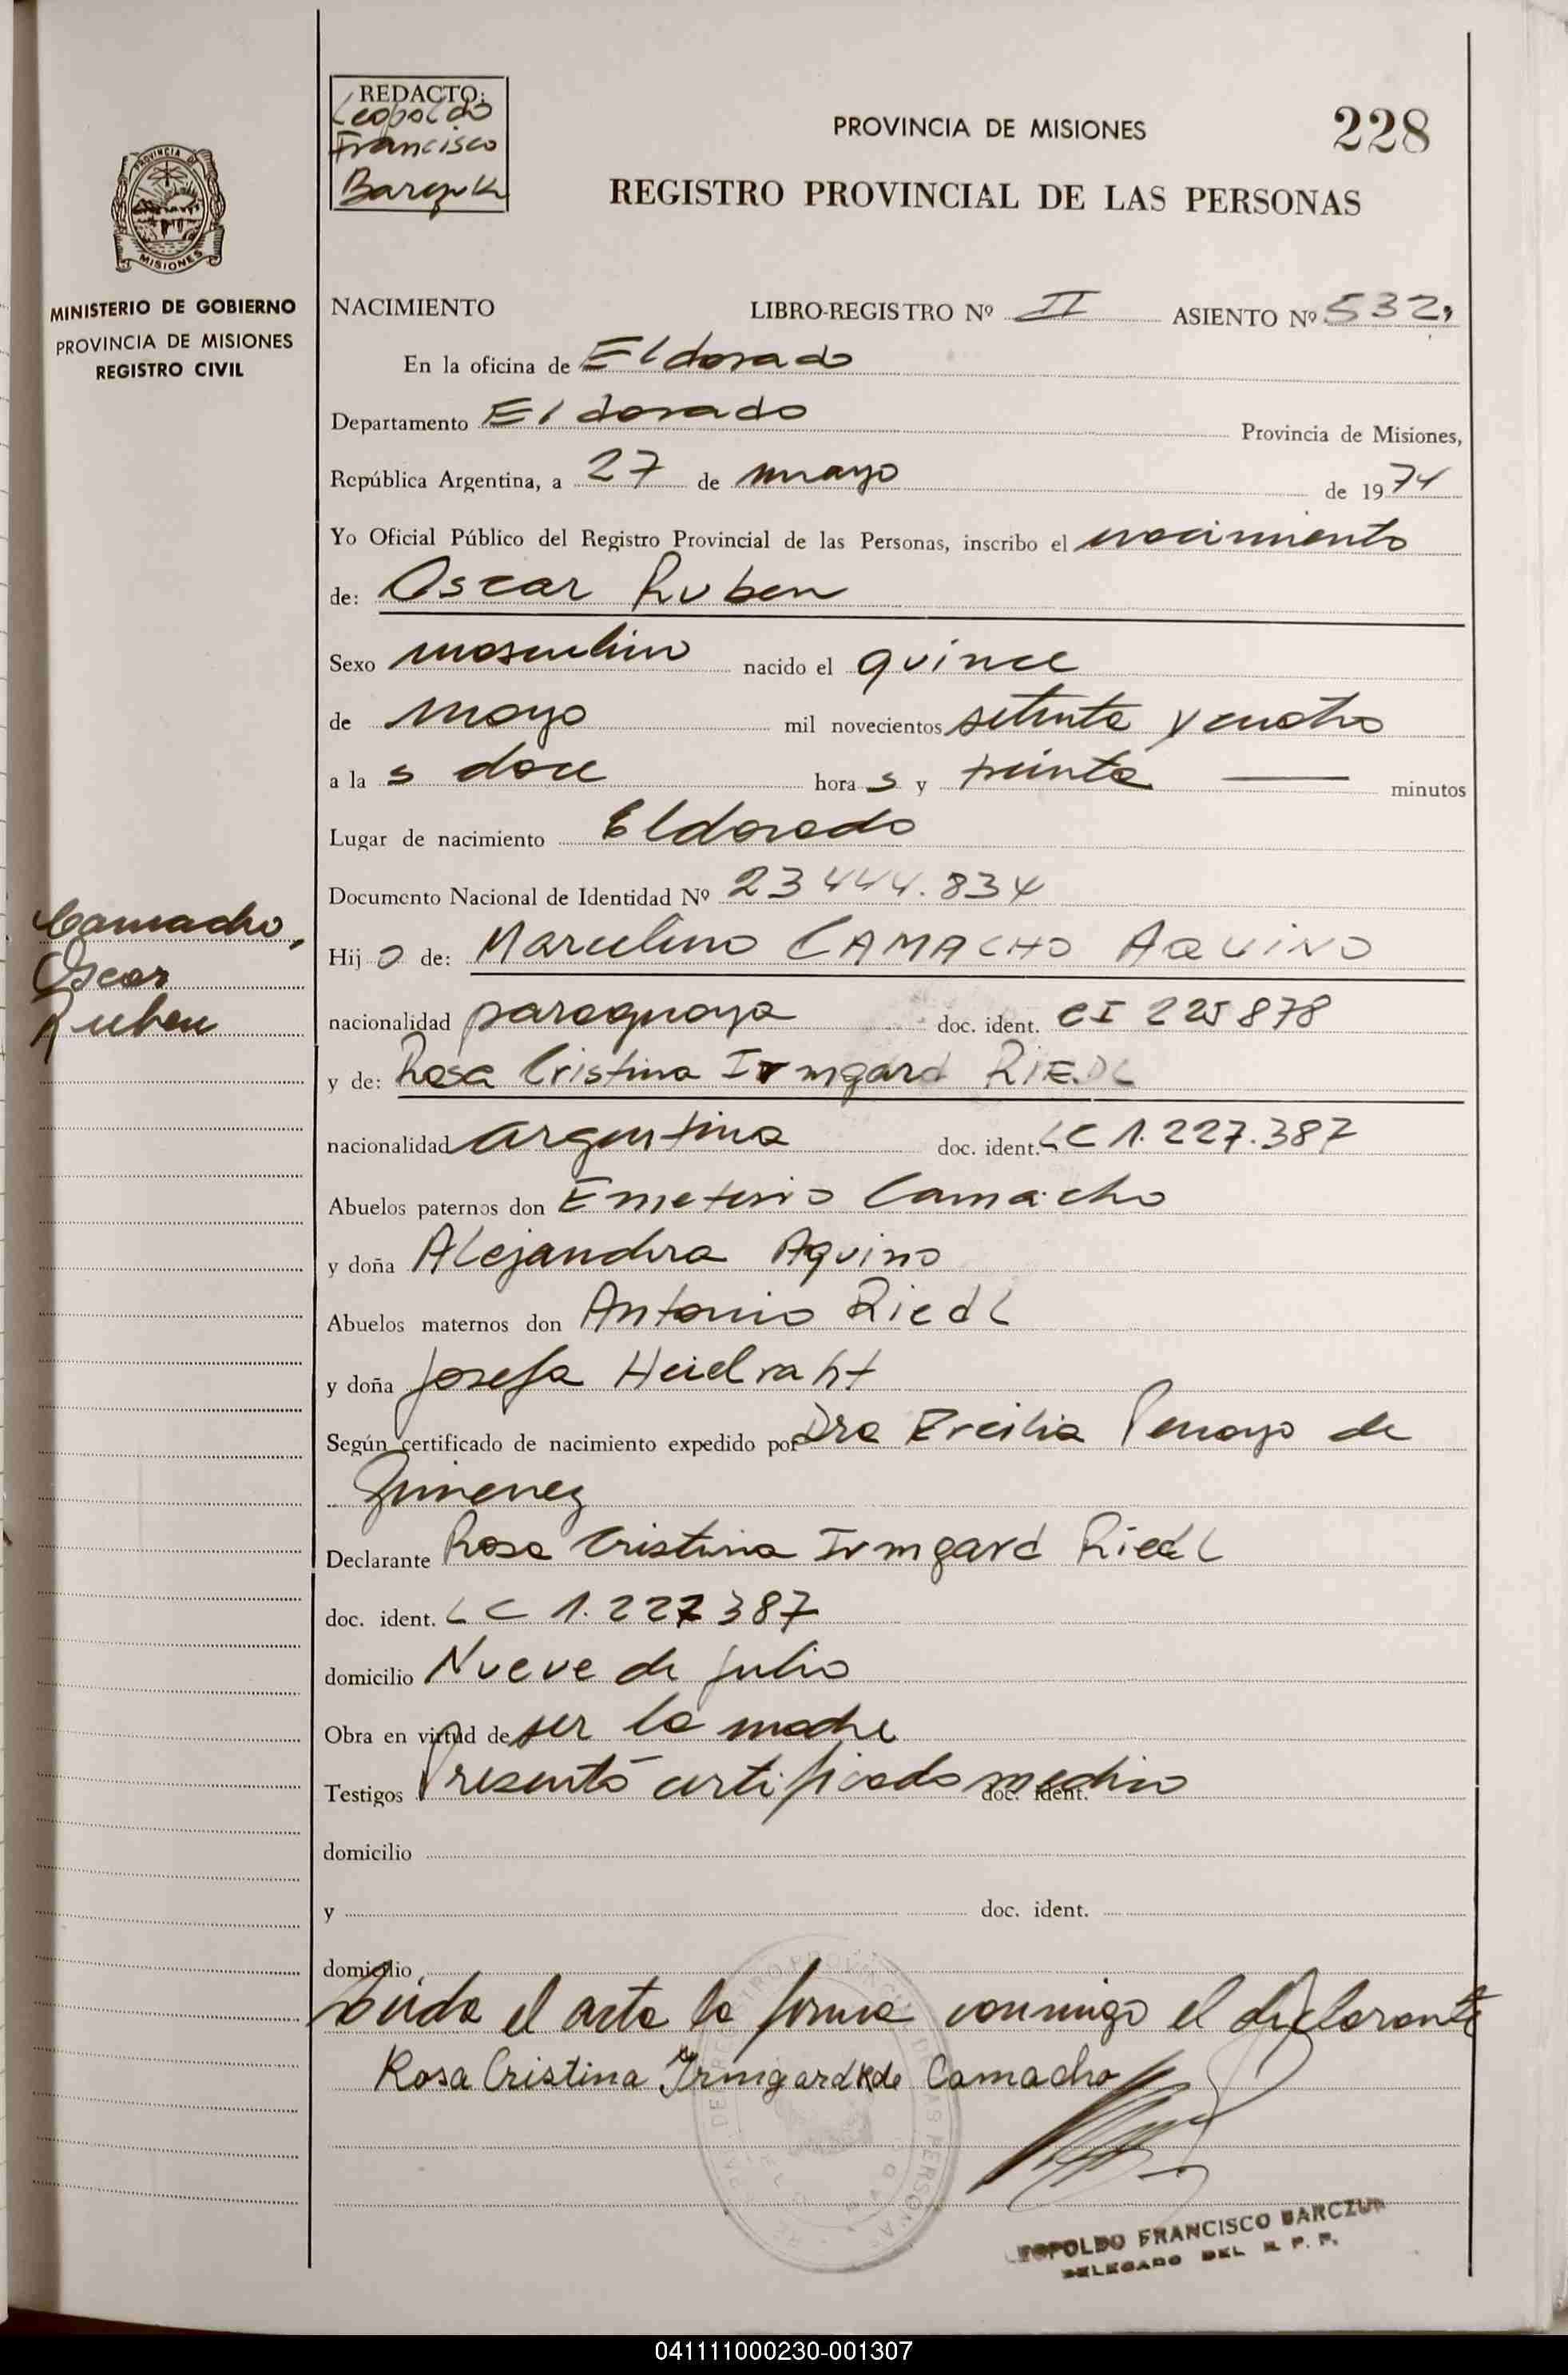 REDACTO:
Leopoldo
Francisco
Barczuk
PROVINCIA DE MISIONES
228
REGISTRO PROVINCIAL DE LAS PERSONAS
PROVINCIA DE
MISIONES
MINISTERIO DE GOBIERNO
PROVINCIA DE MISIONES
REGISTRO CIVIL
NACIMIENTO LIBRO-REGISTRO Nº II ASIENTO Nº 532,
En la oficina de Eldorado
Departamento Eldorado Provincia de Misiones,
República Argentina, a 27 de mayo de 1974
Yo Oficial Público del Registro Provincial de las Personas, inscribo el nacimiento
de: Oscar Ruben
Sexo masculino nacido el quince
de mayo mil novecientos setenta y cuatro
a la s doce hora s y treinta minutos
Lugar de nacimiento Eldorado
Documento Nacional de Identidad Nº 23444.834
Camacho,
Oscar
Ruben
Hij o de: Marcelino CAMACHO AQUINO
nacionalidad paraguaya doc. ident. CI 225878
y de: Rosa Cristina Irmgard RIEDL
nacionalidad argentina doc. ident. LC 1.227.387
Abuelos paternos don Emeterio Camacho
y doña Alejandra Aquino
Abuelos maternos don Antonio Riedl
y doña Josefa Heidraht
Según certificado de nacimiento expedido por Dra Ercilia de
Jimenez
Declarante Rosa Cristina Irmgard Riedl
doc. ident. LC 1.227387
domicilio Nueve de julio
Obra en virtud de ser la madre
Testigos Presentó certificado medico doc. ident.
domicilio
y doc. ident.
domicilio
Leida el acta la firma conmigo el declarante
Rosa Cristina Irmgard R de Camacho
LEOPOLDO FRANCISCO BARCZUK
DELEGADO DEL R. P. P.
041111000230-001307